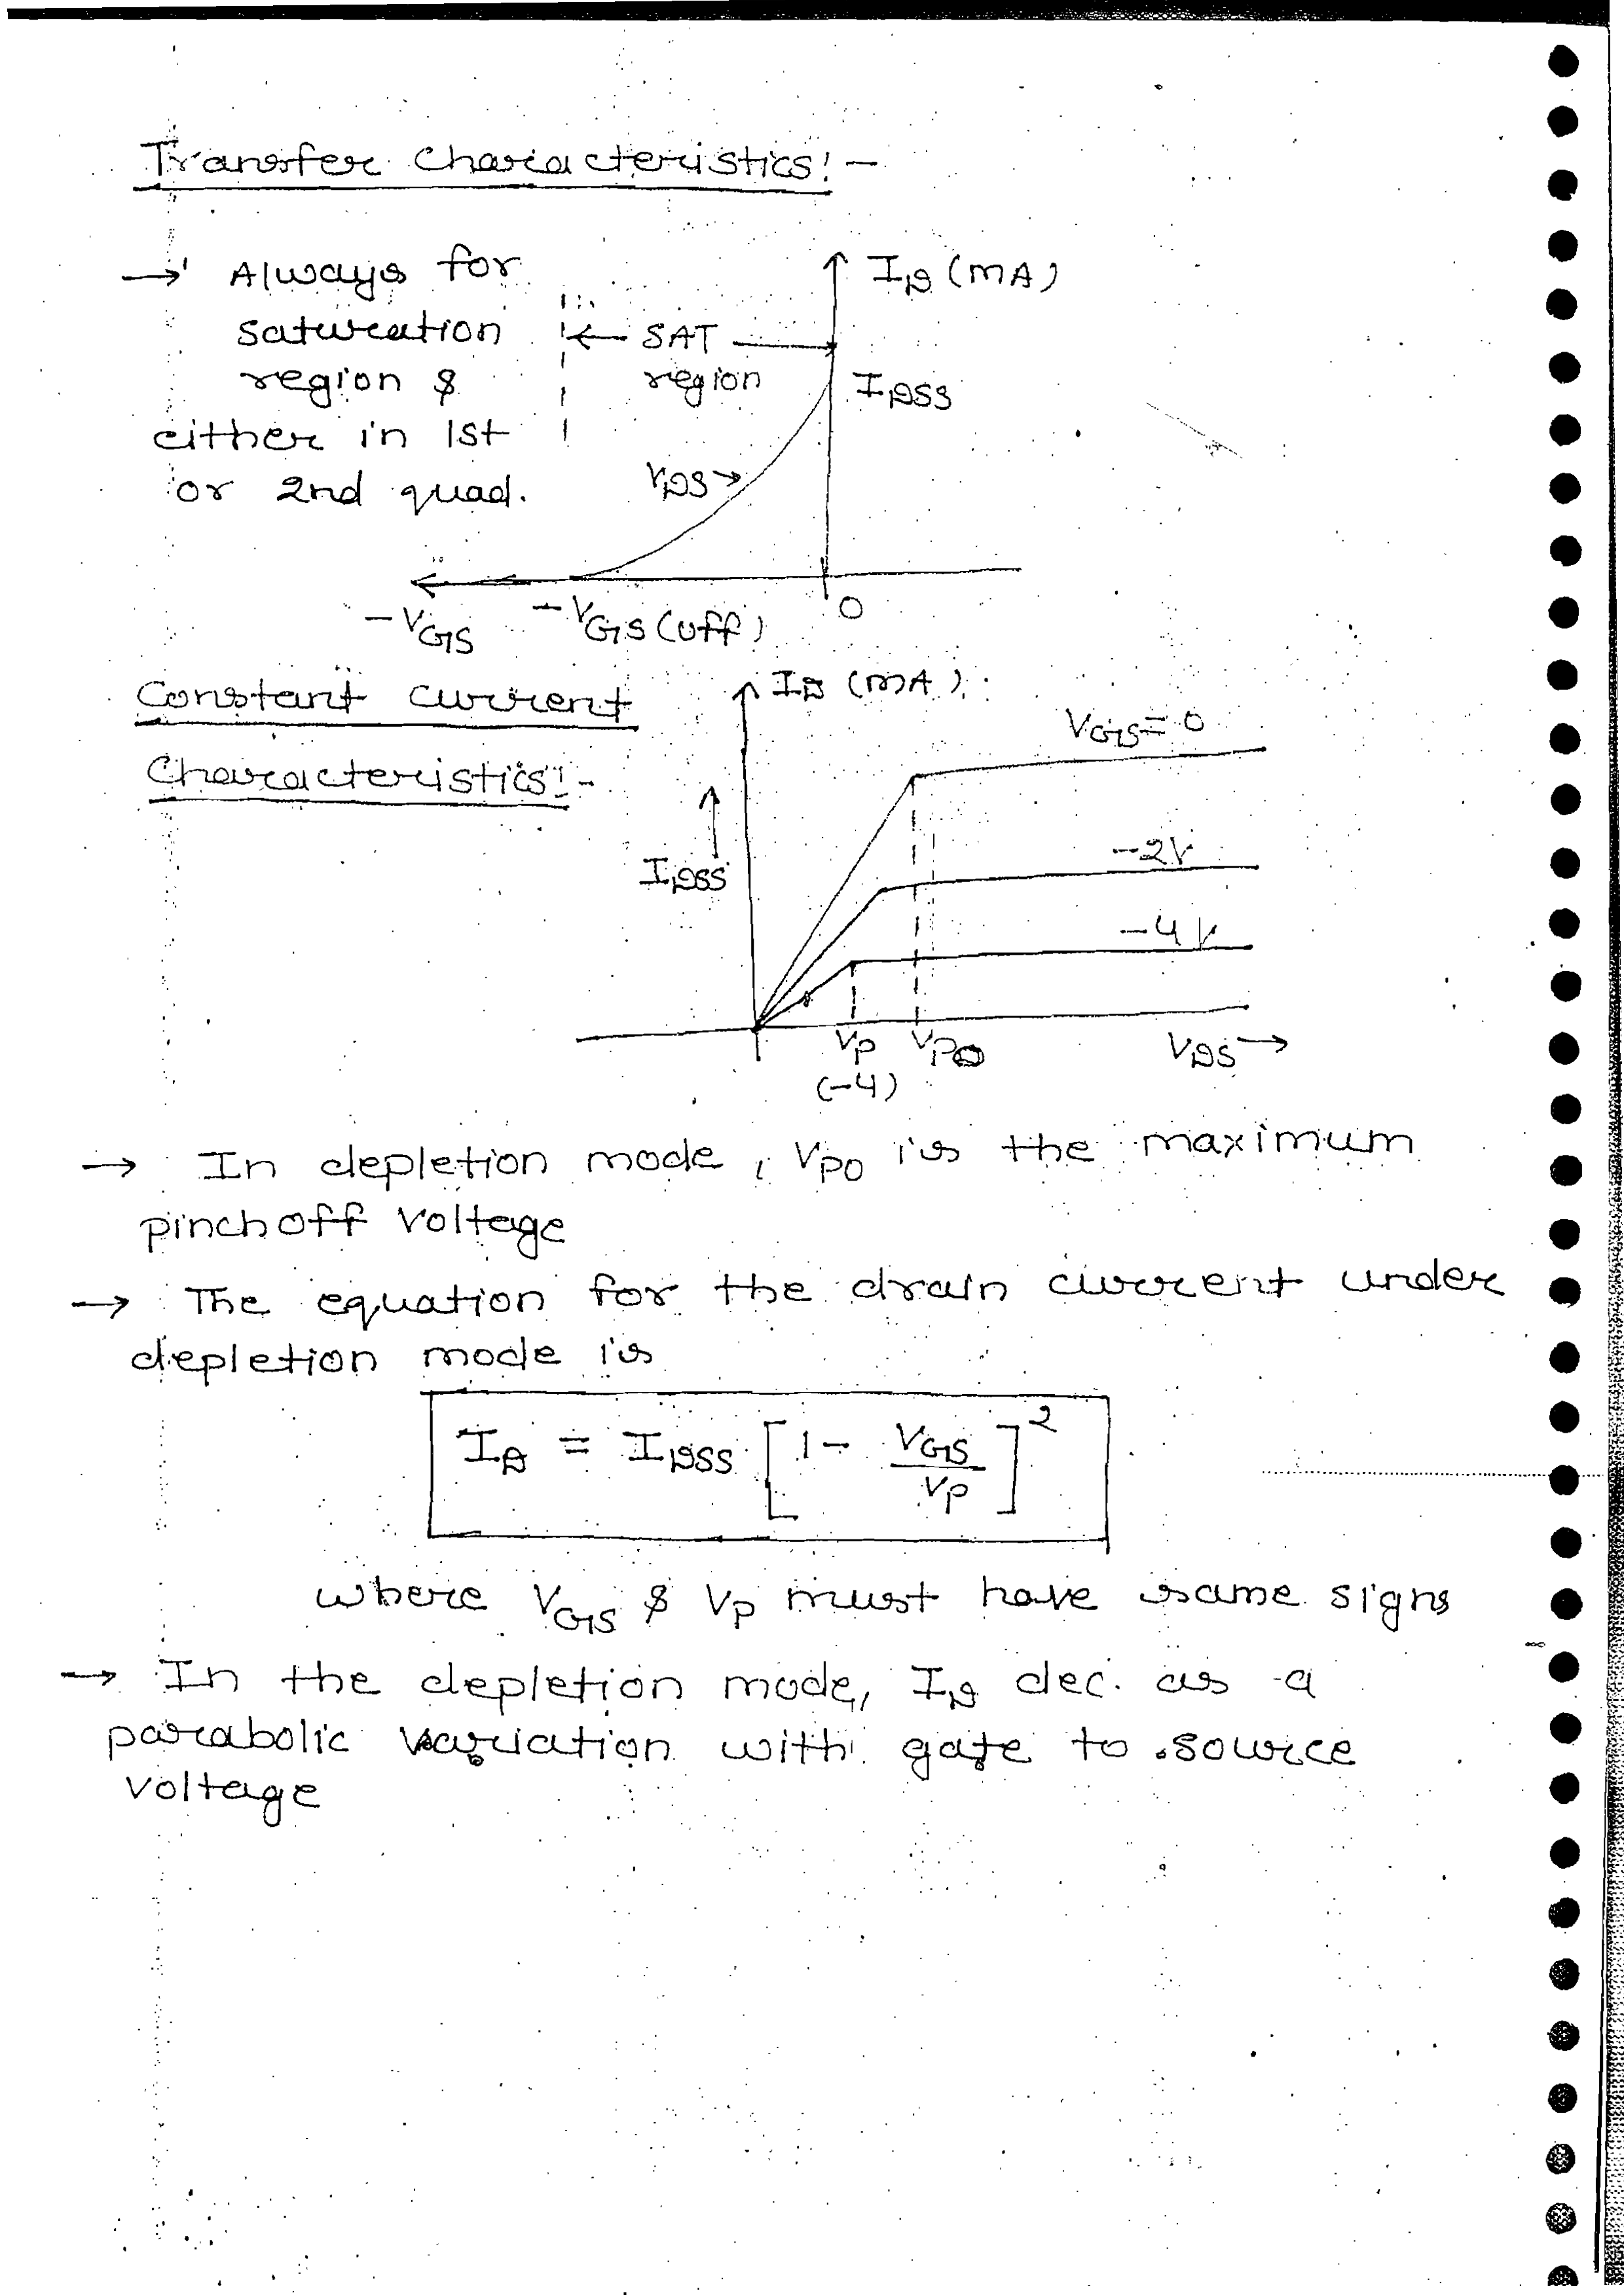 Transfer Characteristics:-
→ Always for
saturation
region &
either in 1st
or 2nd quad.
I_D (mA)
← SAT →
region
I_DSS
V_DS→
0
-V_GS
-V_GS(off)
Constant current
Characteristics:-
I_D (mA)
V_GS = 0
I_DSS
-2V
-4V
V_P
V_P0
V_DS →
(-4)
→ In depletion mode, V_P0 is the maximum
pinchoff voltage
→ The equation for the drain current under
depletion mode is
I_D = I_DSS [1 - V_GS/V_P]^2
where V_GS & V_P must have same signs
→ In the depletion mode, I_D dec. as a
parabolic variation with gate to source
voltage